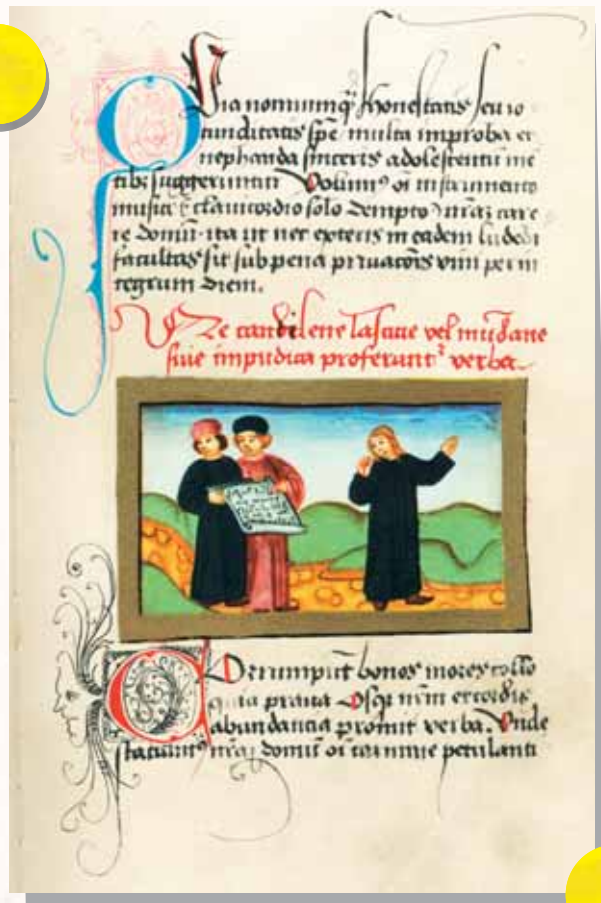 Quia nonnunq̃ honestatis seu io
cunditatis sp̃e multa improba et
nephanda sinceris adolescentũ mẽ
tibꝫ suggeruntur Volumꝰ oĩ instrumento
musico clauicordio solo dempto nr̃az care
re domũ ita ut nec exteris in eadem ludẽdi
facultas sit sub pena priuatõis vini per in
tegrum diem.
Ne cantilene lasciue vel mũdane
siue impudica proferantꝛ̃ verba.
Corrumpũt bonos mores collo
quia praua Osqꝫ nr̃m ex cordis
abundancia promit verba. Unde
statuimꝰ nr̃az domũ oĩ carmine petulanti